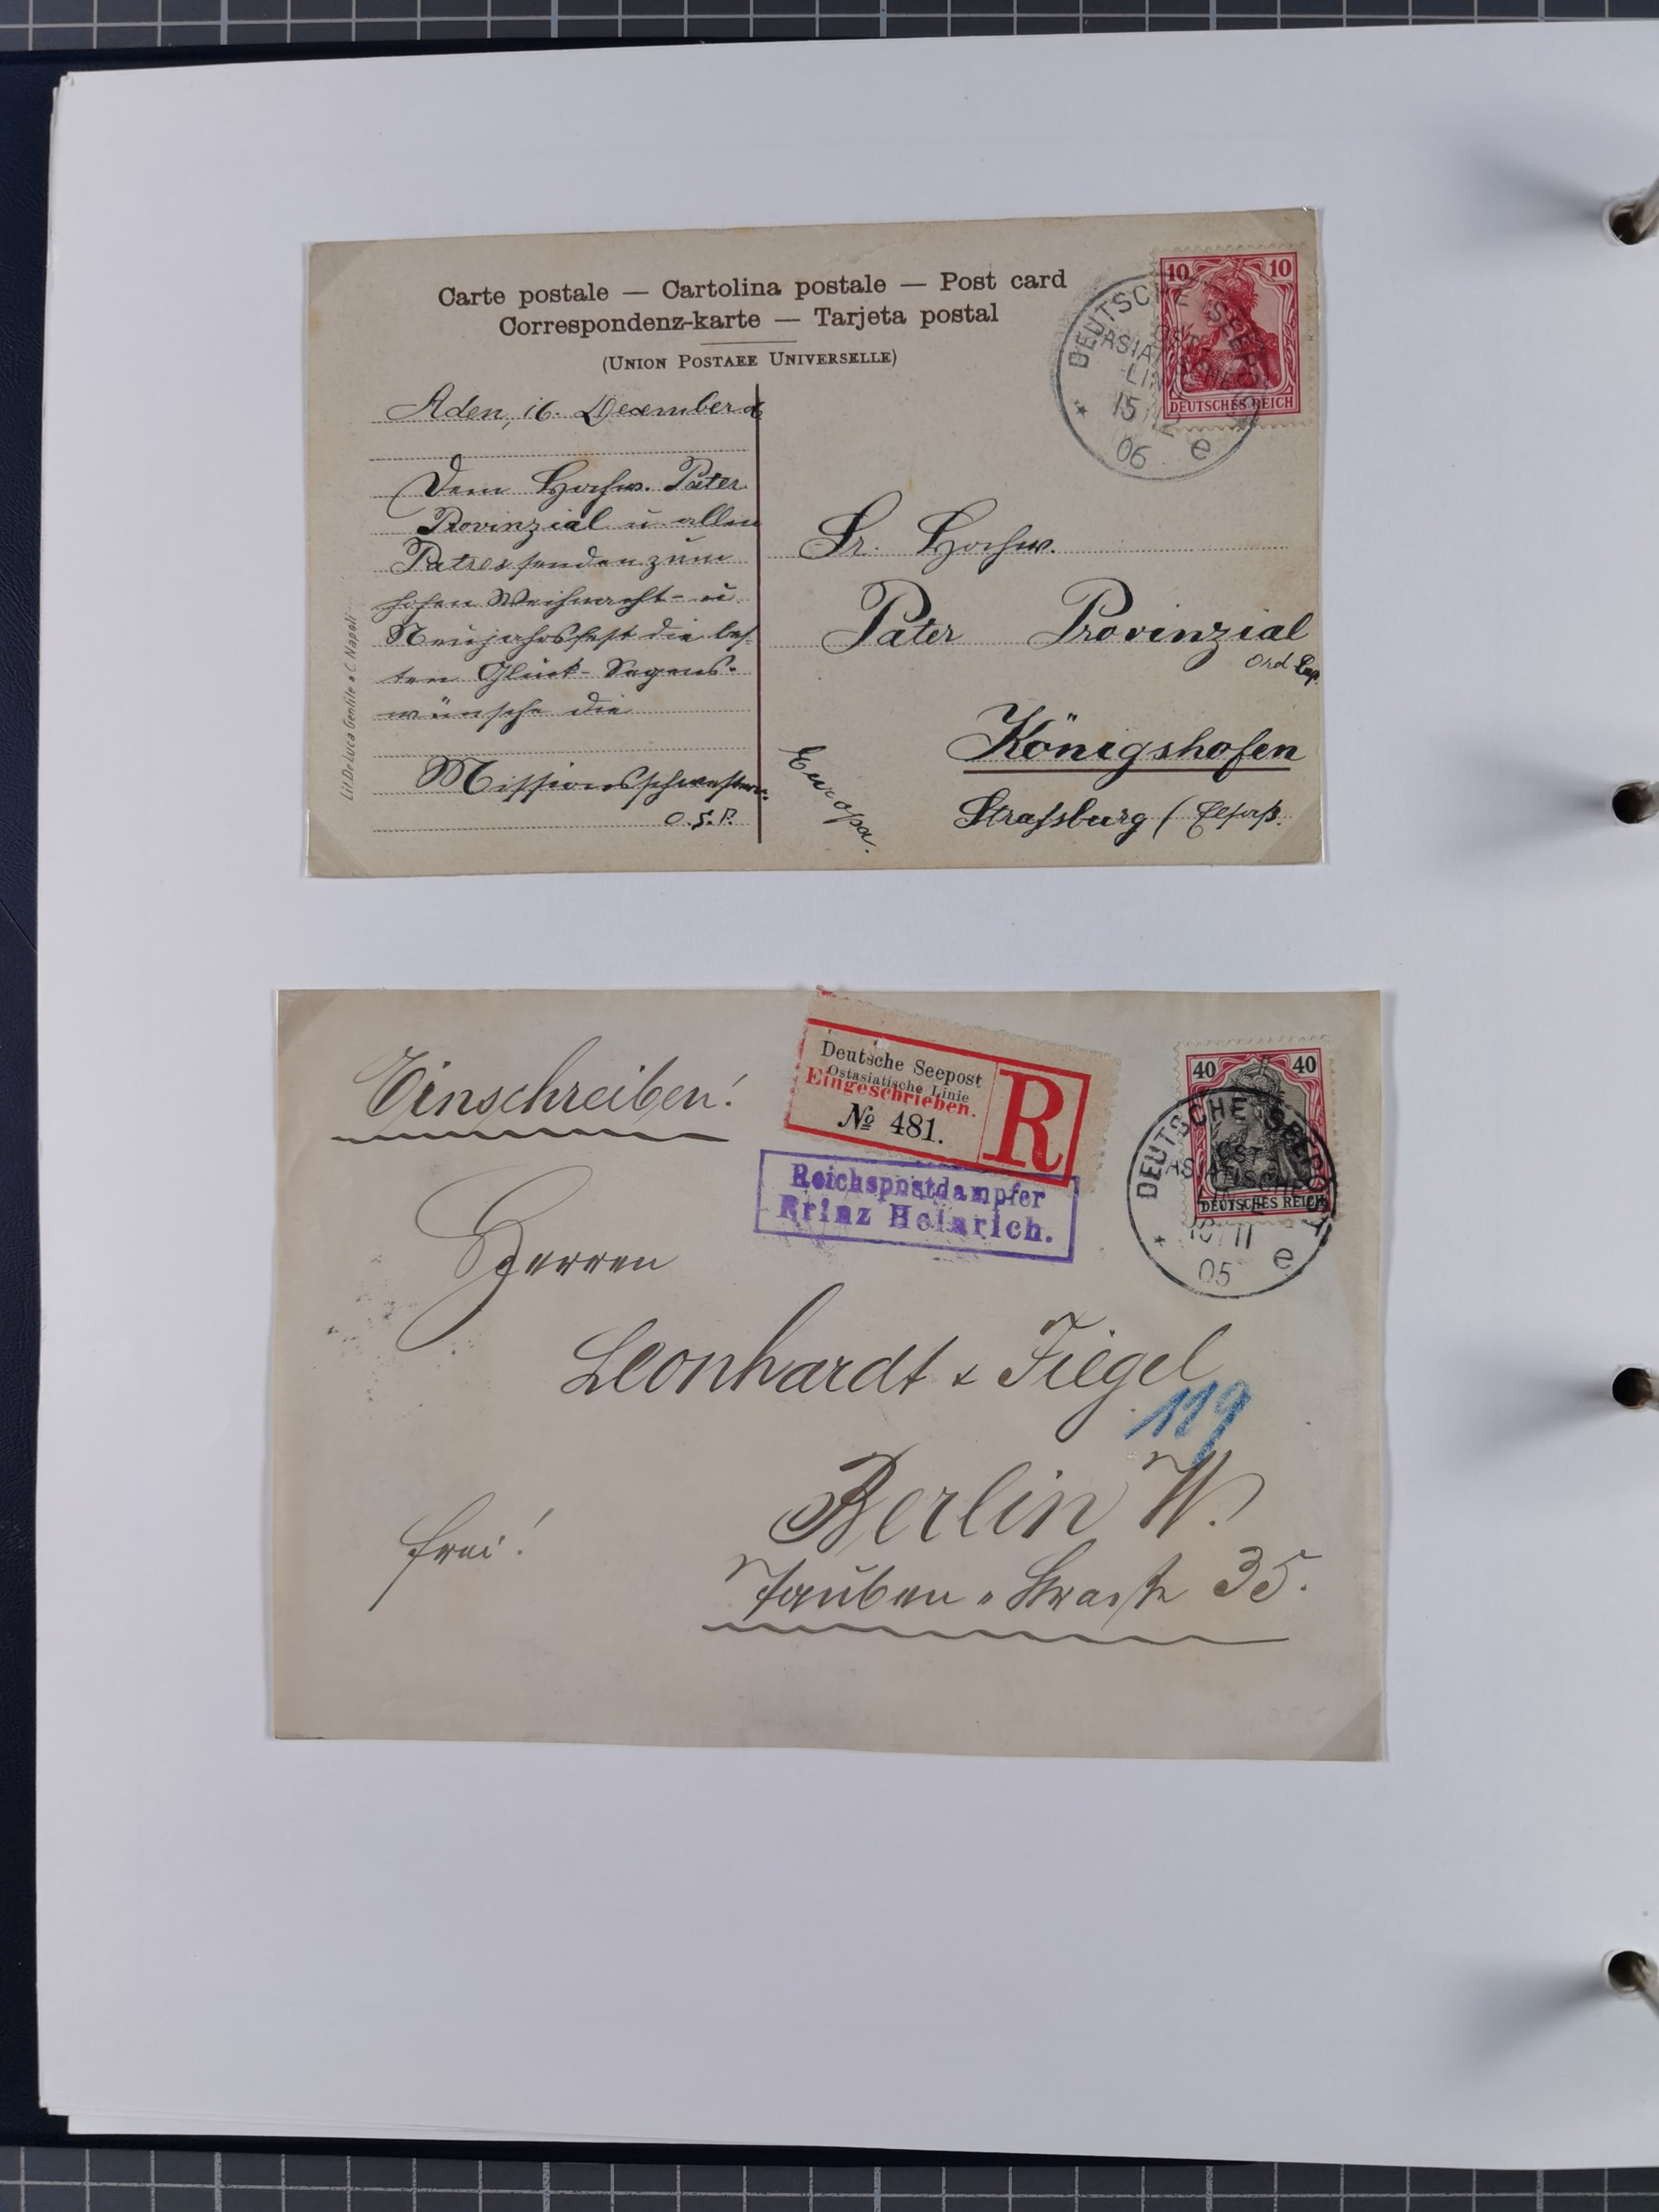 Carte postale — Cartolina postale — Post card
Correspondenz-karte — Tarjeta postal
(UNION POSTAEE UNIVERSELLE)
10 10
DEUTSCHES REICH
DEUTSCHE SEEPOST
OST-
ASIATISCHE
LINIE
15 12
06 e
Aden, 16. December
Dem Hochw. Pater
Provinzial u allen
Patres senden zum
hohen Weihnacht- u
Neujahrsfest die bes-
ten Glück- Segens-
wünsche die
Missionsschwestern
O.S.F.
Lit. De Luca Gentile & C. Napoli
Sr. Hochw.
Pater Provinzial
Ord. Cap.
Königshofen
Strassburg (Elsaß.
Europa.
Einschreiben!
Deutsche Seepost
Ostasiatische Linie
Eingeschrieben.
№ 481.
R
Reichspostdampfer
Prinz Heinrich.
40 40
DEUTSCHES REICH
DEUTSCHE SEEPOST
OST-
ASIATISCHE
11
05 e
Herren
Leonhardt & Fiegel
119
Berlin W.
frei!
Tauben-Strasse 35.